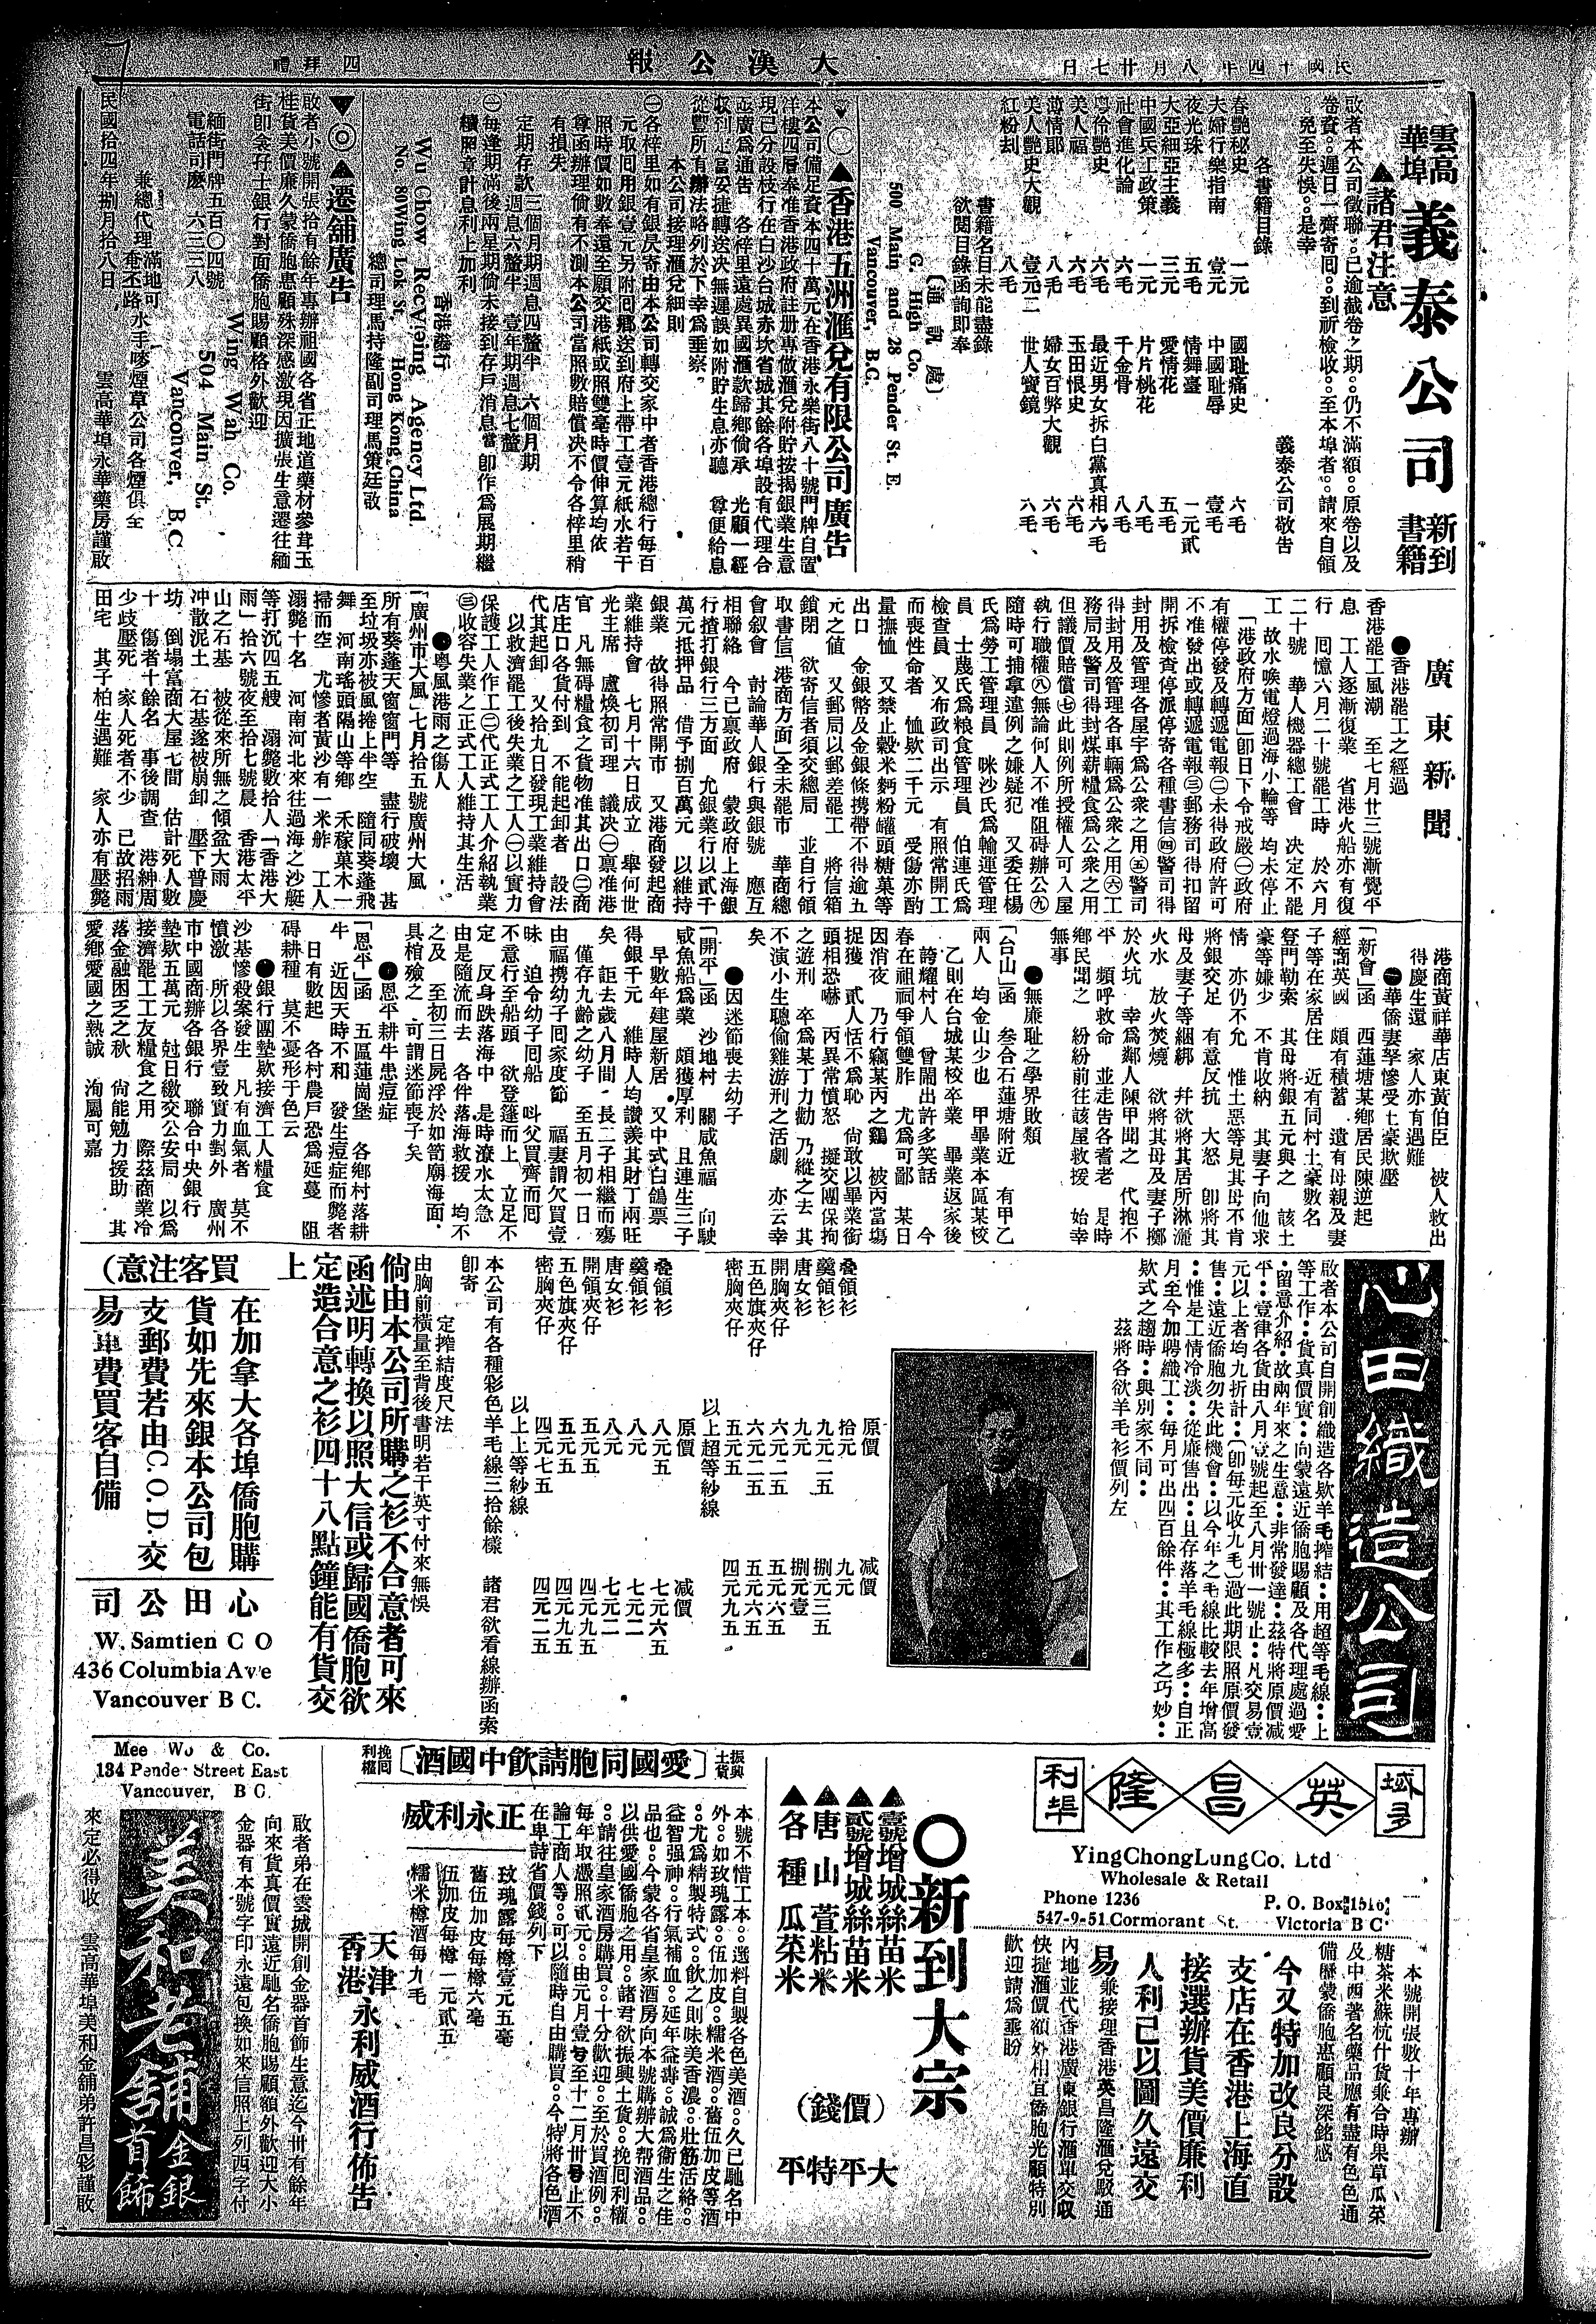 民國十四年八月廿七日
大漢公報
禮拜四
7
雲高華埠
義泰公司
新到書籍
▲諸君注意
啟者本公司徵聯已逾截卷之期仍不滿額原卷以及
卷資遲日一齊寄囘到祈檢收至本埠者請來自領
免至失悞是幸
義泰公司敬告
各書籍目錄
春艷秘史 一元 國耻痛史 六毛
夫婦行樂指南 壹元 中國耻辱 壹毛
夜光珠 五毛 情舞臺 一元貳
大亞細亞主義 三元 愛情花 五毛
中國民工政策 一元 片片桃花 八毛
社會進化論 六毛 千金骨 八毛
粤伶艶史 六毛 最近男女拆白黨眞相 六毛
美人福 六毛 玉田恨史 六毛
激情郎 八毛 婦女百弊大觀 六毛
美人艷史大觀 壹元二 世人寶鏡 八毛
紅粉刦 八毛
書籍名目未能盡錄
欲閱目錄函詢即奉
(通訊處)
G. High Co.
500 Main and 28 Pender St. E.
Vancouver, B.C.
▲香港五洲滙兌有限公司廣告
本公司備足資本四十萬元在香港永樂街八十號門牌自置
洋樓四層奉准香港政府註册專做滙兌附貯按揭銀業生意
現已分設枝行在白沙台城赤坎省城其餘各埠設有代理合
並廣爲通告 各梓里遠處異國滙款歸鄉倘承 光顧一經
收到定當安捷轉送决無遲誤如附貯生息亦聽 尊便給息
從豐所有辦法略列於下幸爲垂察
本公司接理滙兌細則
㊀各梓里如有銀艮寄由本公司轉交家中者香港總行每百
元取囘用銀壹元另附囘鄉送到府上帶工壹元紙水若干
照時價如數奉還至願交港紙或照雙毫時價伸算均依
尊函辦理倘有不測本公司當照數賠償决不令各梓里稍
有損失
定期存款 三個月期週息四釐半 六個月期
週息六釐半 壹年期週息七釐
㊀每逢期滿後兩星期倘未接到存戶消息當卽作爲展期繼
續照章計息利上加利
香港發行
Wu Chow Receiveing Agency Ltd
No. 80Wing Lok St. Hong Kong, China
總司理馬持隆副司理馬策廷啟
▼◎▲遷舖廣告
啟者小號開張拾有餘年專辦祖國各省正地道藥材參茸玉
桂貨美價廉久蒙僑胞惠顧殊深感激現因擴張生意遷往緬
街卽衾孖士銀行對面僑胞賜顧格外歡迎
Wing Wah Co.
504 Main St.
Vancouver, B.C.
緬街門牌五百〇四號
電話司麽 六三三八
兼總代理滿地可 奄丕路水手嘜煙草公司各煙俱全
民國拾四年捌月拾八日 雲高華埠永華藥房謹啟
廣東新聞
●香港罷工之經過
香港罷工風潮 至七月廿三號漸覺平
息 工人逐漸復業 省港火船亦有復
行 囘憶六月二十號罷工時 於六月
二十號 華人機器總工會 决定不罷
工 故水喉電燈過海小輪等 均未停止
「港政府方面」卽日下令戒嚴㊀政府
有權停發及轉遞電報㊁未得政府許可
不准發出或轉遞電報㊂郵務司得扣留
開拆檢查停派停寄各種書信㊃警司得
封用及管理各屋宇爲公衆之用㊄警司
得封用及管理各車輛爲公衆之用㊅工
務局及警司得封煤薪糧食爲公衆之用
但議價賠償㊆此則例所授權人可入屋
執行職權㊇無論何人不准阻碍辦公㊈
隨時可捕拿違例之嫌疑犯 又委任楊
氏爲勞工管理員 咪沙氏爲輸運管理
員 士蔑氏爲粮食管理員 伯連氏爲
檢查員 又布政司出示 有照常開工
而喪性命者 恤欵二千元 受傷亦酌
量撫恤 又禁止穀米麪粉罐頭糖菓等
出口 金銀幣及金銀條携帶不得逾五
元之值 又郵局以郵差罷工 將信箱
鎖閉 欲寄信者須交總局 並自行領
取書信「港商方面」全未罷市 華商總
會叙會 討論華人銀行與銀號 應互
相聯絡 今已禀政府 蒙政府上海銀
行揸打銀行三方面 允銀業行以貳千
萬元抵押品 借予捌百萬元 以維持
銀業 故得照常開市 又港商發起商
業維持會 七月十六日成立 舉何世
光主席 盧煥初司理 議决㊀禀准港
官 凡無碍糧食之貨物准其出口㊁商
店庄口各貨付到 不能起卸者 設法
代其起卸 又拾九日發現工業維持會
以救濟罷工後失業之工人㊀以實力
保護工人作工㊁代正式工人介紹執業
㊂收容失業之正式工人維持其生活
●粤風港雨之傷人
「廣州市大風」七月拾五號廣州大風
所有葵蓬天窗窗門等 盡行破壞 甚
至垃圾亦被風捲上半空 隨同葵蓬飛
舞 河南瑤頭隔山等鄉 禾稼菓木一
掃而空 尤慘者黃沙有一米舴 工人
溺斃十名 河南河北來往過海之沙艇
等打沉四五艘 溺斃數拾人「香港大
雨」拾六號夜至拾七號晨 香港太平
山之石基 被從來所無之傾盆大雨
冲散泥土 石基遂被崩卸 壓下普慶
坊 倒塌富商大屋七間 估計死人數
十 傷者十餘名 事後調查 港紳周
少歧壓死 家人死者不少 已故招雨
田宅 其子柏生遇難 家人亦有壓斃
港商黃祥華店東黃伯臣 被人救出
得慶生還 家人亦有遇難
●華僑妻孥慘受土豪欺壓
「新會」函 西蓮塘某鄉居民陳逆起
經商英國 頗有積蓄 遺有母親及妻
子等在家居住 近有同村土豪數名
登門勒索 其母將銀五元與之 該土
豪等嫌少 不肯收納 其妻子向他求
情 亦仍不允 惟土惡等見其母不肯
將銀交足 有意反抗 大怒 卽將其
母及妻子等綑綁 幷欲將其居所淋灑
火水 放火焚燒 欲將其母及妻子擲
於火坑 幸爲鄰人陳甲聞之 代抱不
平 頻呼救命 並走告各耆老 是時
鄉民聞之 紛紛前往該屋救援 始幸
無事
●無廉耻之學界敗類
「台山」函 叁合石蓮塘附近 有甲乙
兩人 均金山少也 甲畢業本區某校
乙則在台城某校卒業 畢業返家後
誇耀村人 曾鬧出許多笑話 今
春在祖祠爭領雙胙 尤爲可鄙 某日
因消夜 乃行竊某丙之鷄 被丙當塲
捉獲 貳人恬不爲恥 尙敢以畢業銜
頭相恐嚇 丙異常憤怒 擬交團保拘
之遊刑 卒爲某丁力勸 乃縱之去 其
不演小生聰偷雞游刑之活劇 亦云幸
矣
●因迷節喪去幼子
「開平」函 沙地村 關咸魚福 向駛
咸魚船爲業 頗獲厚利 且連生三子
早數年建屋新居 又中式白鴿票
得銀千元 維時人均讚羨其財丁兩旺
矣 詎去歲八月間 長二子相繼而殤
僅存九齡之幼子 至五月初一日
由福携幼子囘家度節 福妻謂欠買壹
昧 迫令幼子囘船 呌父買齊而囘
不意行至船頭 欲登篷而上 立足不
定 反身跌落海中 是時潦水太急
由是隨流而去 各伴落海救援 均不
之及 至初三日屍浮於如笳廟海面
具棺殮之 可謂迷節喪子矣
●恩平耕牛患痘症
「恩平」函 五區蓮崗堡 各鄉村落耕
牛 近因天時不和 發生痘症而斃者
日有數起 各村農戶恐爲延蔓 阻
碍耕種 莫不憂形于色云
●銀行團墊欵接濟工人糧食
沙基慘殺案發生 凡有血氣者 莫不
憤激 所以各界壹致實力對外 廣州
市中國商辦各銀行 聯合中央銀行
墊欵五萬元 尅日繳交公安局 以爲
接濟罷工工友糧食之用 際茲商業冷
落金融困乏之秋 尙能勉力援助 其
愛鄉愛國之熱誠 洵屬可嘉
心田織造公司
啟者本公司自開創織造各欵羊毛搾結用超等毛線上
等工作貨真價實向蒙遠近僑胞賜顧及各代理處過愛
留意介紹故兩年來之生意非常發達茲特將原價减
平壹律各貨由八月壹號起至八月卅一號止凡交易壹
元以上者均九折計(卽每元收九毛)過此期限照原價發
售遠近僑胞勿失此機會以今年之毛線比較去年增高
惟是工情冷淡從廉售出且存落羊毛線極多自正
月至今加聘織工每月可出四百餘件其工作之巧妙
欵式之趨時與別家不同
茲將各欵羊毛衫價列左
原價 减價
叠領衫 拾元 九元
羹領衫 九元二五 捌元三五
唐女衫 九元 捌元壹
開胸夾仔 六元二五 五元六五
五色旗夾仔 六元二五 五元六五
密胸夾仔 五元五 四元九五
以上超等紗線
原價 减價
叠領衫 八元五 七元六五
羹領衫 八元 七元二
唐女衫 八元 七元二
開領夾仔 五元五 四元九五
五色旗夾仔 五元五 四元九五
密胸夾仔 四元七五 四元二五
以上上等紗線
本公司有各種彩色羊毛線三拾餘樣 諸君欲看線辦函索
卽寄
定搾結度尺法
由胸前橫量至背後書明若干英寸付來無悞
倘由本公司所購之衫不合意者可來
函述明轉換以照大信或歸國僑胞欲
定造合意之衫四十八點鐘能有貨交
上
買客注意)
在加拿大各埠僑胞購
貨如先來銀本公司包
支郵費若由C.O.D.交
易車費買客自備
心田公司
W. Samtien C O
436 Columbia Ave
Vancouver B C.
域多利埠
英昌隆
YingChongLungCo. Ltd
Wholesale & Retail
Phone 1236
P. O. Box 1516
547-9-51 Cormorant St.
Victoria B C
本號開張數十年專辦
糖茶米蘇杭什貨兼合時果草瓜菜
及中西著名藥品應有盡有色色通
備歷蒙僑胞惠顧良深銘感
今又特加改良分設
支店在香港上海直
接選辦貨美價廉利
人利己以圖久遠交
易兼接理香港英昌隆滙兌駁通
內地並代香港廣東銀行滙單交收
快捷滙價額外相宜僑胞光顧特別
歡迎請爲垂盼
〇新到大宗
▲壹號增城絲苗米
▲貳號增城絲苗米
▲唐山萱粘米
▲各種瓜菜米
(價錢)
大平特平
振興土貨
〔愛國同胞請飲中國酒〕
挽囘利權
本號不惜工本選料自製各色美酒久已馳名中
外如玫瑰露伍加皮糯米酒舊伍加皮等酒
尤爲精製特式飲之則味美香濃壯筋活絡
益智强神行氣補血延年益壽誠爲衞生之佳
品也今蒙各省皇家酒房向本號購辦大帮酒品
以供愛國僑胞之用諸君欲振興土貨挽囘利權
請往皇家酒房購買十分歡迎至於買酒例
每年取慿照貳元由元月壹号至十二月卅号止不
論工商人等可以隨時自由購買今特將各色酒
在卑詩省價錢列下
正永利威
玫瑰露每樽壹元五毫
舊伍加皮每樽六毫
伍加皮每樽一元貳五
糯米樽酒每九毛
天津香港永利威酒行佈告
Mee Wo & Co.
134 Pender Street East
Vancouver, B C.
啟者弟在雲城開創金器首飾生意迄今卅有餘年
向來貨真價實遠近馳名僑胞賜顧額外歡迎大小
金器有本號字印永遠包換如來信照上列四字付
美和老舖
金銀首飾
來定必得收 雲高華埠美和金舖弟許昌彩謹啟